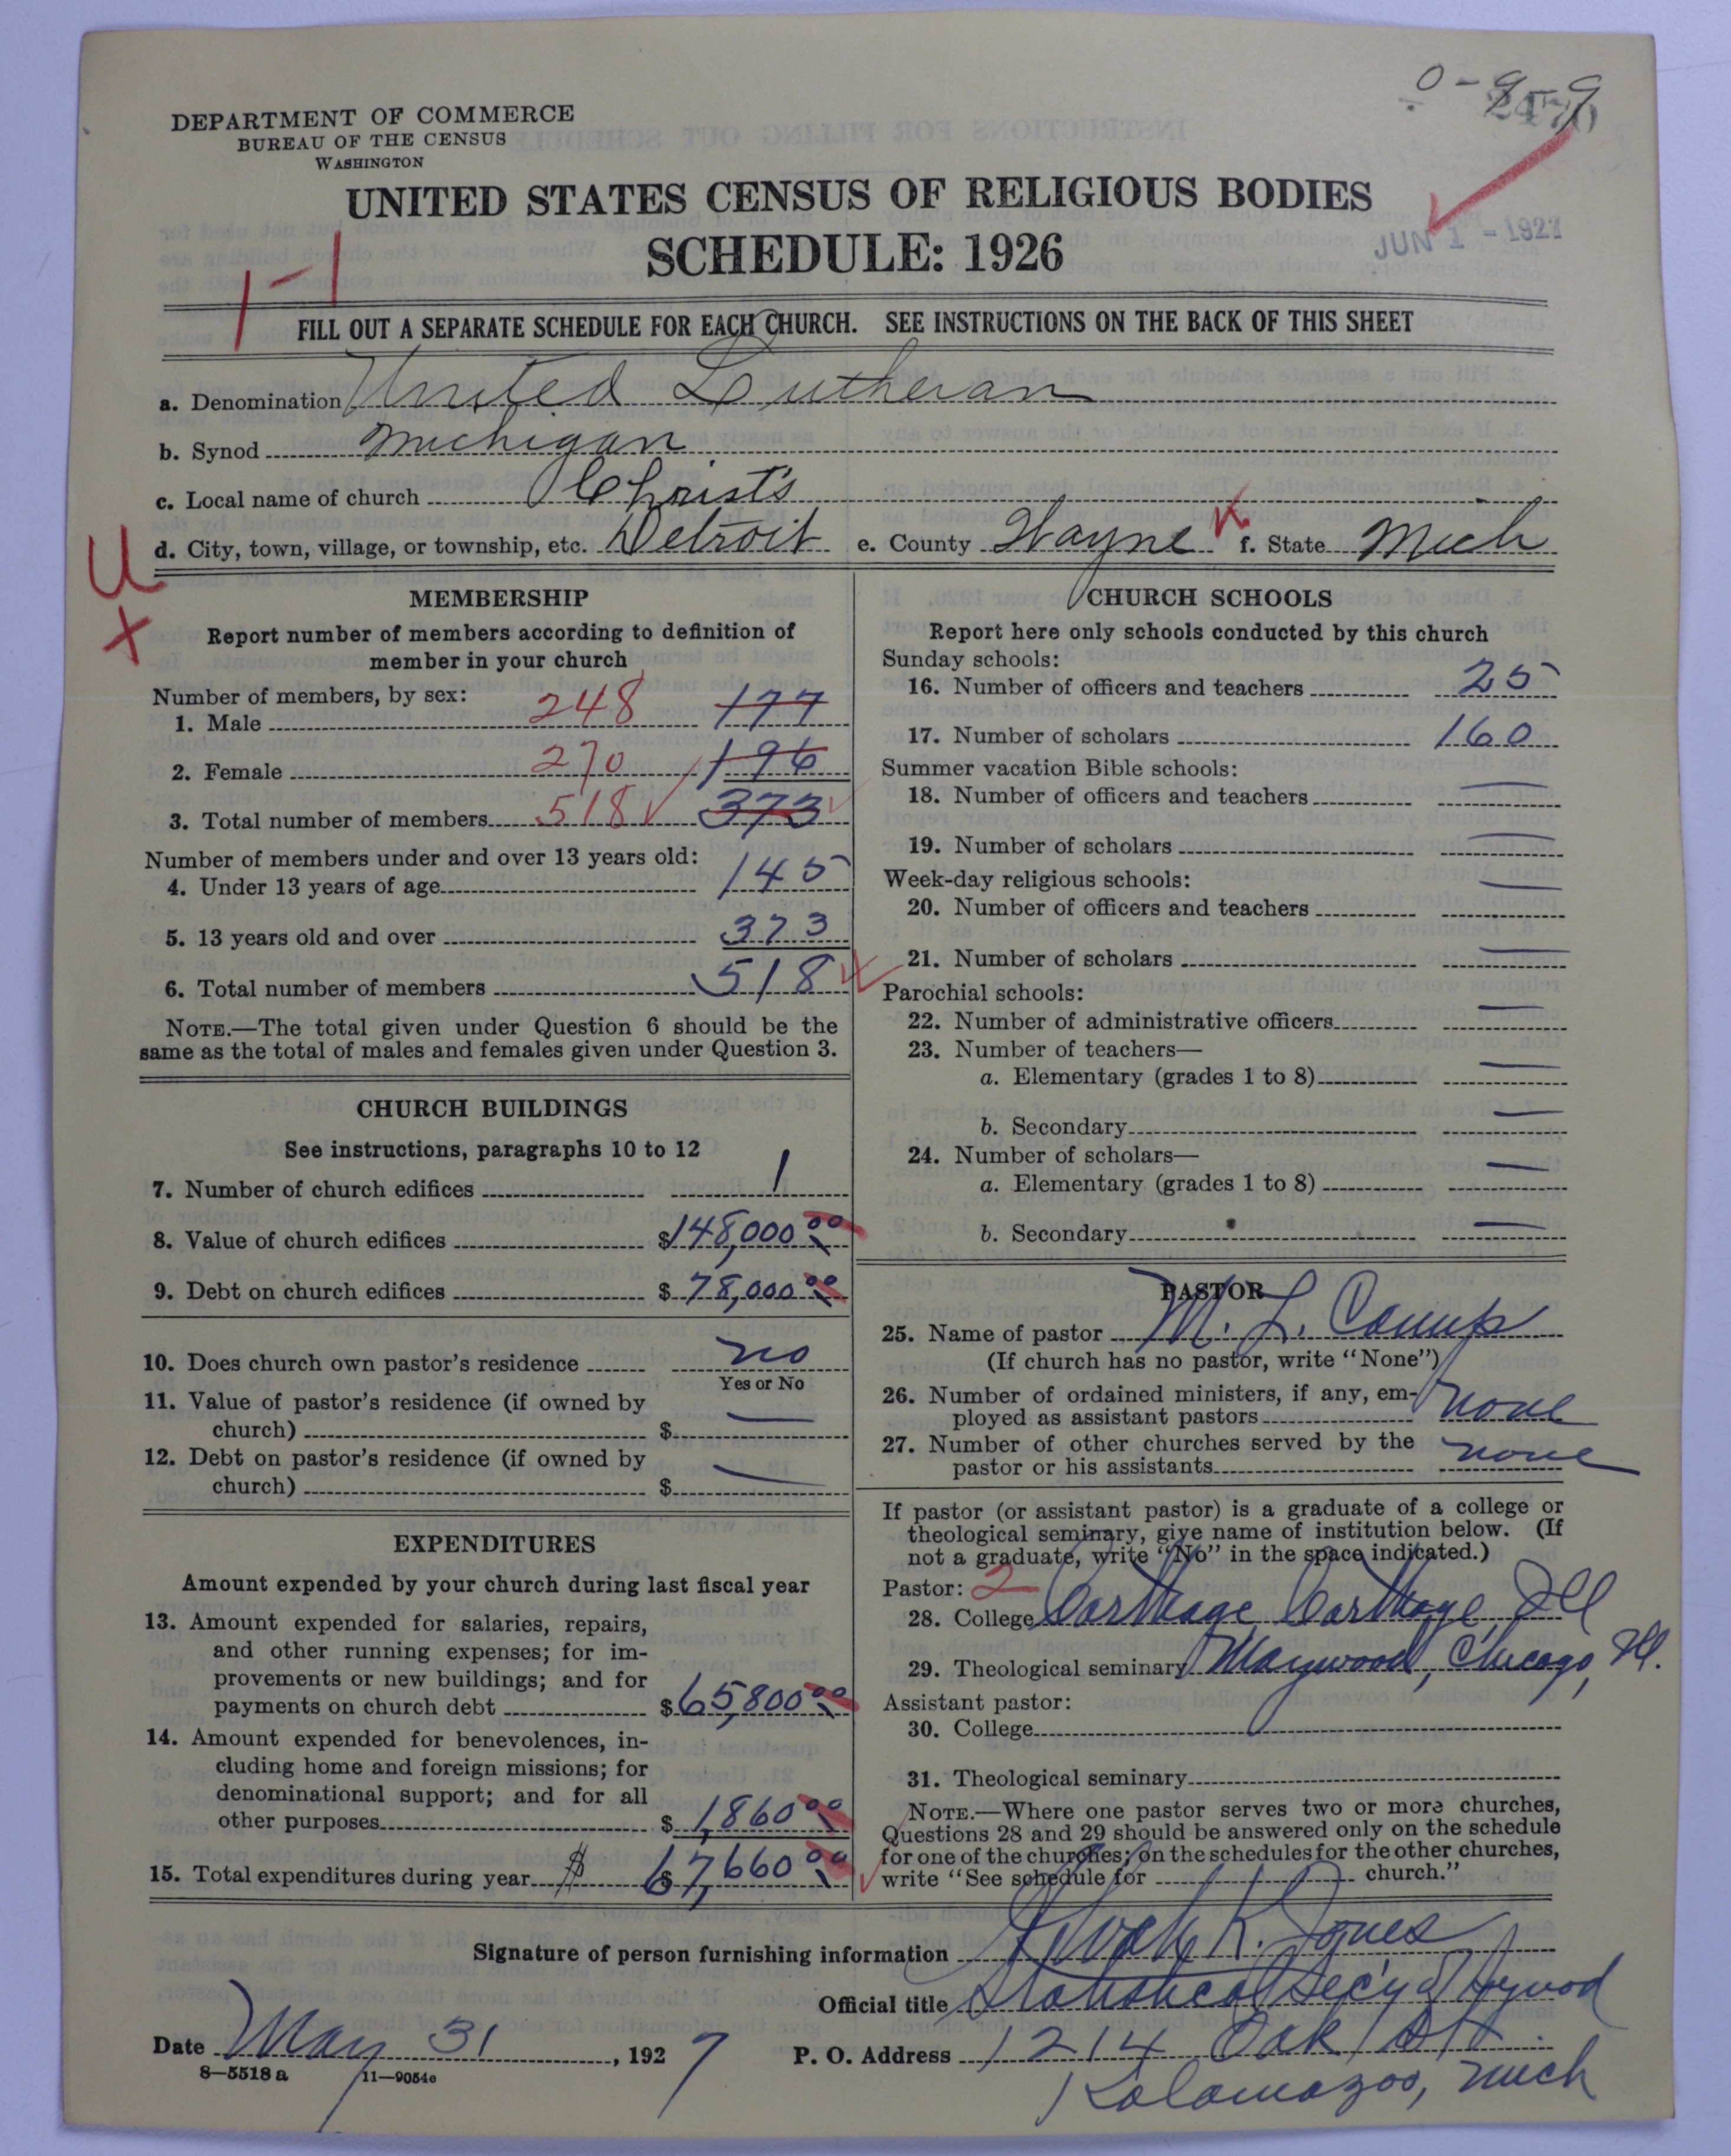 0-9-9
2470
DEPARTMENT OF COMMERCE
BUREAU OF THE CENSUS
WASHINGTON
UNITED STATES CENSUS OF RELIGIOUS BODIES
SCHEDULE: 1926
JUN 1 - 1927
1-1
FILL OUT A SEPARATE SCHEDULE FOR EACH CHURCH. SEE INSTRUCTIONS ON THE BACK OF THIS SHEET
a. Denomination United Lutheran
b. Synod Michigan
c. Local name of church Christ's
d. City, town, village, or township, etc. Detroit e. County Wayne f. State Mich
U
X
MEMBERSHIP
Report number of members according to definition of
member in your church
Number of members, by sex:
1. Male 248 177
2. Female 270 196
3. Total number of members 518 373
Number of members under and over 13 years old:
4. Under 13 years of age 145
5. 13 years old and over 373
6. Total number of members 518
NOTE.—The total given under Question 6 should be the
same as the total of males and females given under Question 3.
CHURCH BUILDINGS
See instructions, paragraphs 10 to 12
7. Number of church edifices 1
8. Value of church edifices $148,000 00
9. Debt on church edifices $78,000 00
10. Does church own pastor's residence no
Yes or No
11. Value of pastor's residence (if owned by
church) $ —
12. Debt on pastor's residence (if owned by
church) $ —
EXPENDITURES
Amount expended by your church during last fiscal year
13. Amount expended for salaries, repairs,
and other running expenses; for im-
provements or new buildings; and for
payments on church debt $65,800 00
14. Amount expended for benevolences, in-
cluding home and foreign missions; for
denominational support; and for all
other purposes $1,860 00
15. Total expenditures during year $ $67,660 00
CHURCH SCHOOLS
Report here only schools conducted by this church
Sunday schools:
16. Number of officers and teachers 25
17. Number of scholars 160
Summer vacation Bible schools:
18. Number of officers and teachers —
19. Number of scholars —
Week-day religious schools:
20. Number of officers and teachers —
21. Number of scholars —
Parochial schools:
22. Number of administrative officers —
23. Number of teachers—
a. Elementary (grades 1 to 8) —
b. Secondary —
24. Number of scholars—
a. Elementary (grades 1 to 8) —
b. Secondary —
PASTOR
25. Name of pastor M. L. Camp
(If church has no pastor, write "None")
26. Number of ordained ministers, if any, em-
ployed as assistant pastors none
27. Number of other churches served by the
pastor or his assistants none
If pastor (or assistant pastor) is a graduate of a college or
theological seminary, give name of institution below. (If
not a graduate, write "No" in the space indicated.)
Pastor: 2
28. College Carthage, Carthage, Ill
29. Theological seminary Maywood, Chicago, Ill.
Assistant pastor:
30. College
31. Theological seminary
NOTE.—Where one pastor serves two or more churches,
Questions 28 and 29 should be answered only on the schedule
for one of the churches; on the schedules for the other churches,
write "See schedule for church."
Signature of person furnishing information K. Jones
Official title Statistical Sec'y of Synod
Date May 31, 1927 P. O. Address 1214 Oak St.
Kalamazoo, Mich
8-5518 a 11-9054e